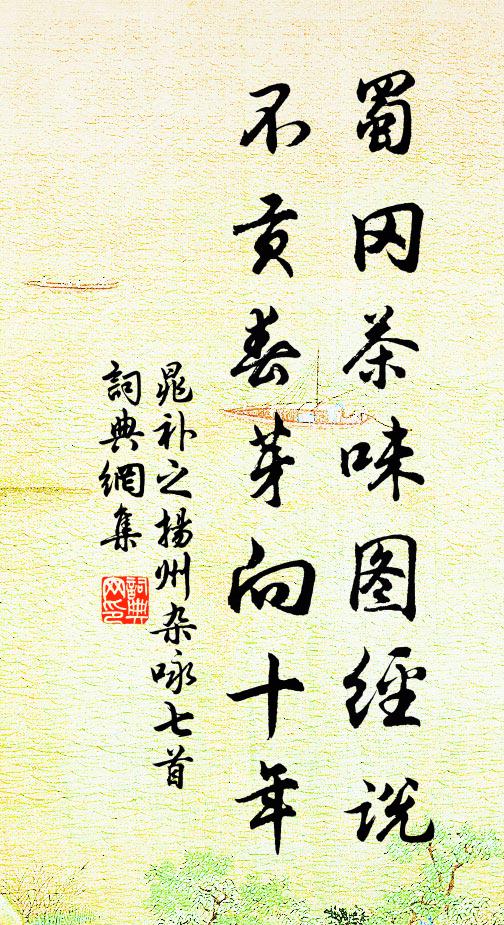 蜀冈茶味图經说
不贡春芽向十年
晁补之揚州杂咏七首
詞典網集
詞典网印